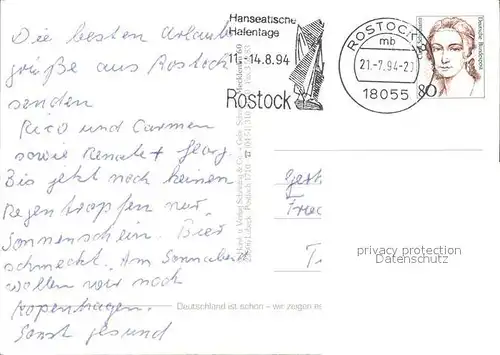 Die besten Urlaubs
grüße aus Rostock
senden
Rico und Carmen
sowie Renate + Georg.
Bis jetzt noch keinen
Regentropfen nur
Sonnenschein. Bier
schmeckt. Am Sonnabend
wollen wir nach
Kopenhagen.
Sonst gesund
Hanseatische
Hafentage
11.-14.8.94
Rostock
ROSTOCK
mb
21.-7.94-2
18055
80
Deutsche Bundespost
Deutschland ist schön – wir zeigen es
privacy protection
Datenschutz